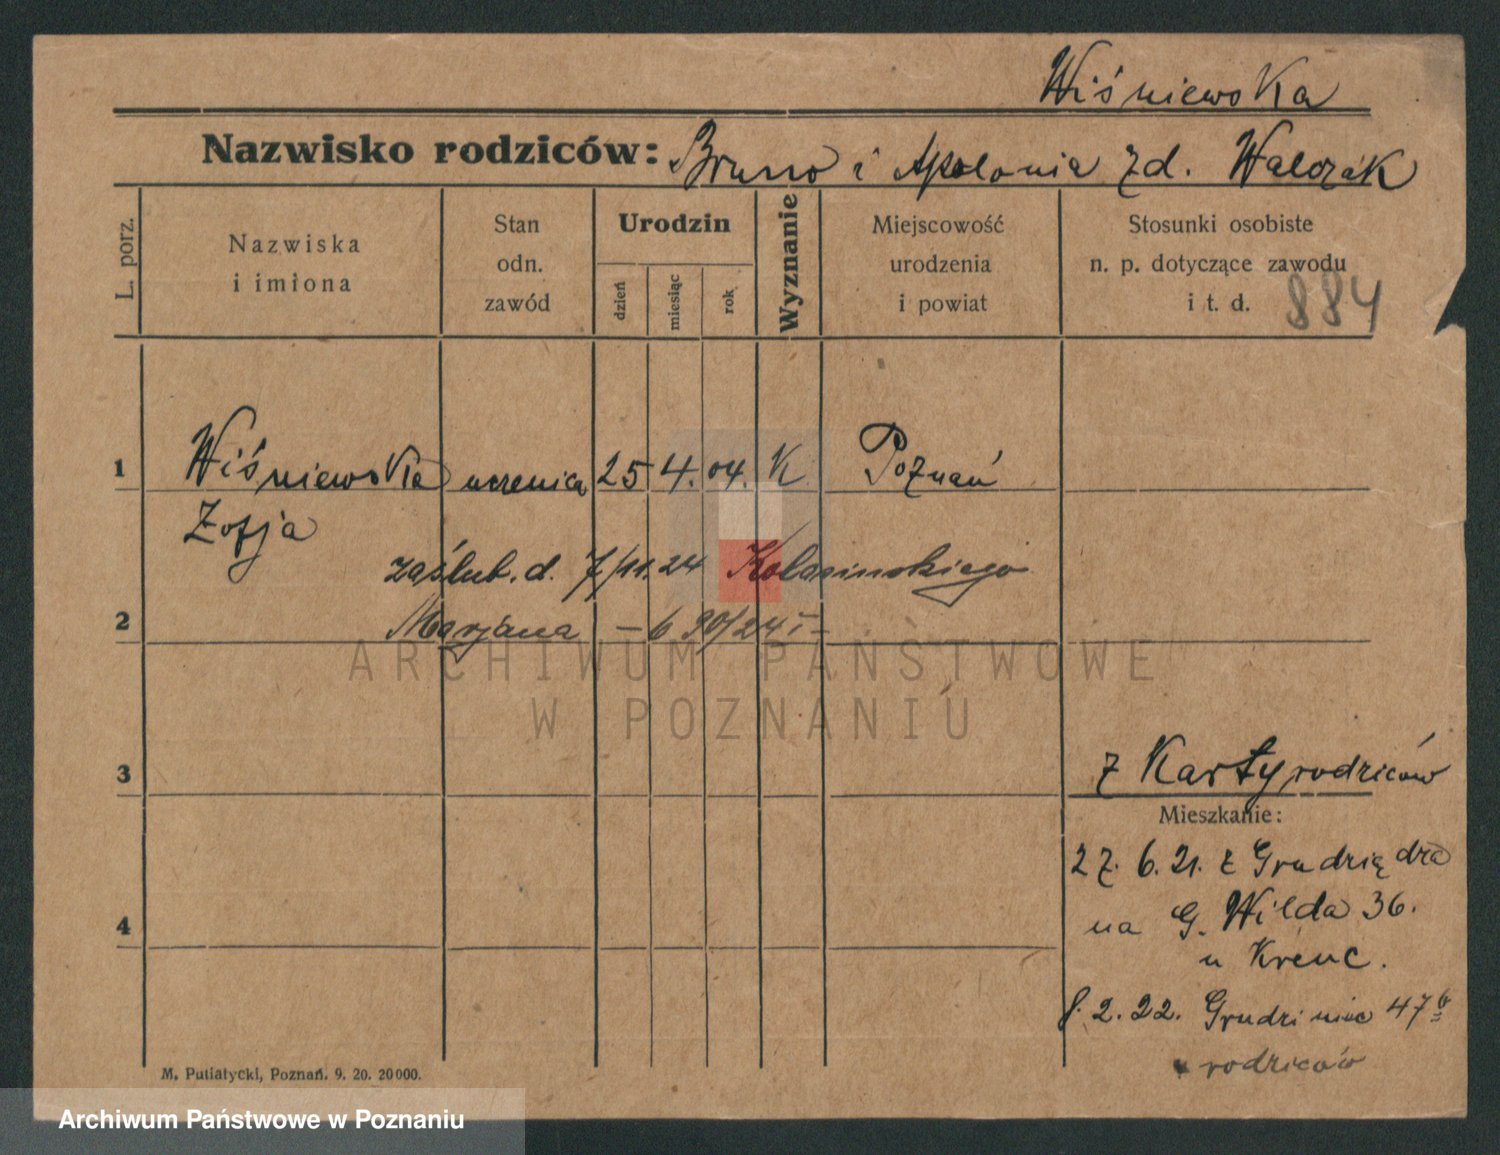 Wiśniewska
Nazwisko rodziców: Bruno i Apolonia zd. Walczak
L. porz.
Nazwiska
i imiona
Stan
odn.
zawód
Urodzin
dzień
miesiąc
rok
Wyznanie
Miejscowość
urodzenia
i powiat
Stosunki osobiste
n. p. dotyczące zawodu
i t. d.
884
1 Wiśniewska uczenica 25 4. 04. K Poznań
Zofja
zaślub. d. 7/11.24 Kolasinskiego
2 Marjana – 6 90/24 I –
ARCHIWUM PAŃSTWOWE
W POZNANIU
3
z Karty rodziców
Mieszkanie:
27. 6. 21. z Grudziądza
na G. Wilda 36.
u Krenc.
4
8. 2. 22. Grudziniec 47b
u rodziców
M. Putiatycki, Poznań. 9. 20. 20000.
Archiwum Państwowe w Poznaniu